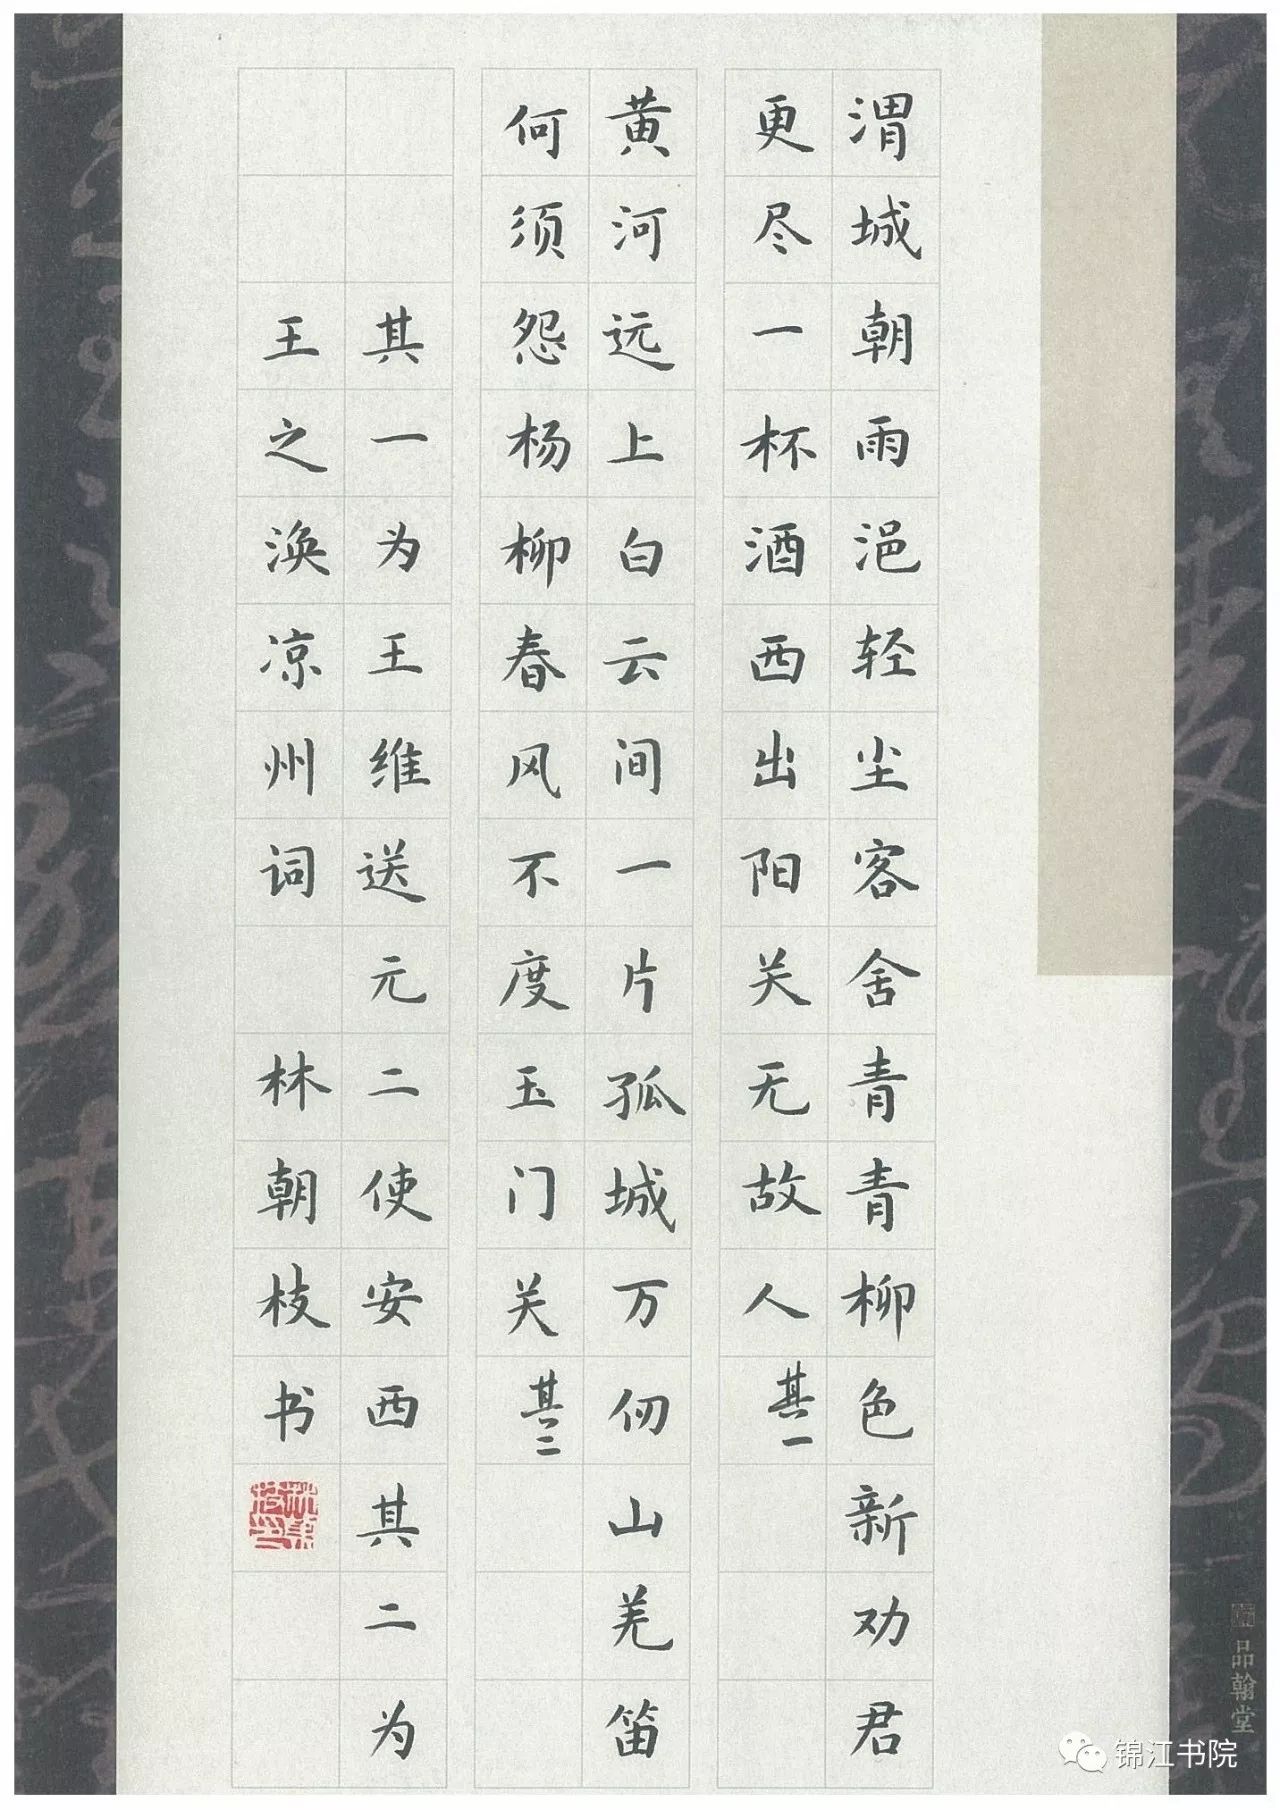 渭城朝雨浥轻尘客舍青青柳色新劝君
更尽一杯酒西出阳关无故人其一
黄河远上白云间一片孤城万仞山羌笛
何须怨杨柳春风不度玉门关其二
其一为王维送元二使安西其二为
王之涣凉州词 林朝枝书
林朝枝印
品翰堂
锦江书院